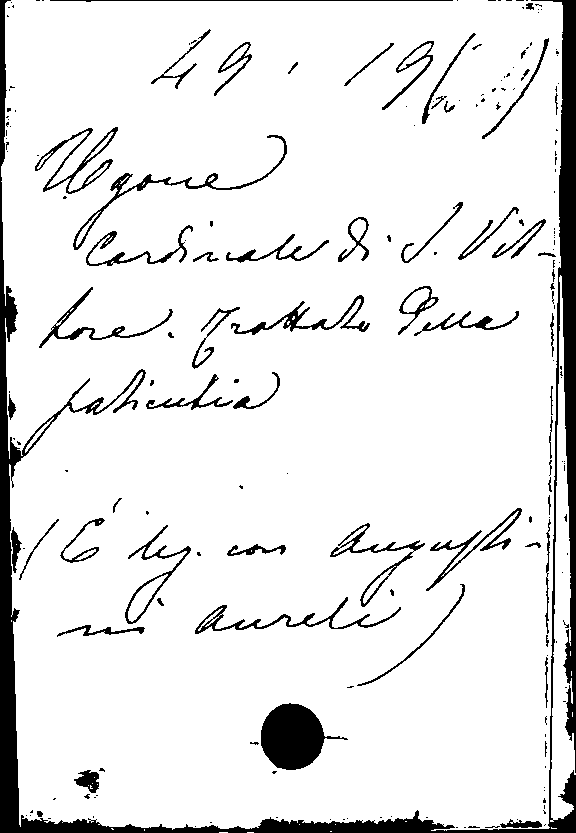 49. 19
Ugone
Cardinale di S. Vit-
tore. Trattato della
patientia
(È leg. con Augusti-
ni Aureli)